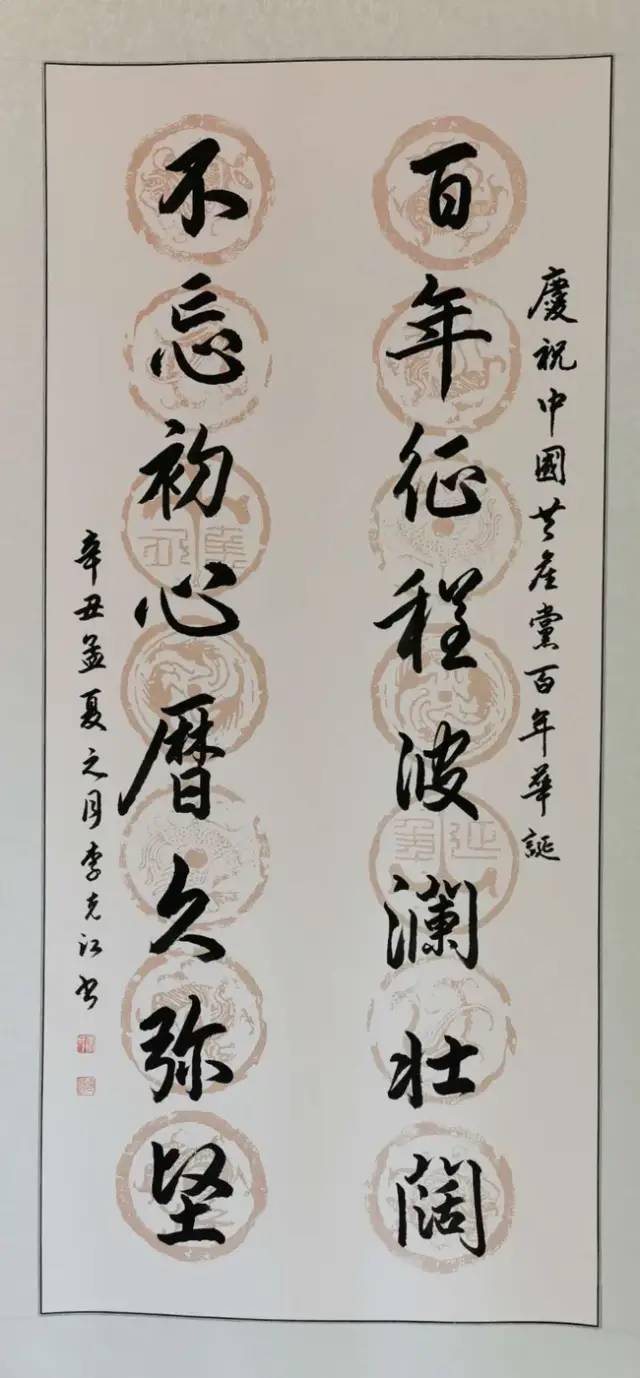 慶祝中國共產黨百年華誕
百年征程波瀾壯闊
不忘初心曆久弥堅
辛丑孟夏之月李克江书